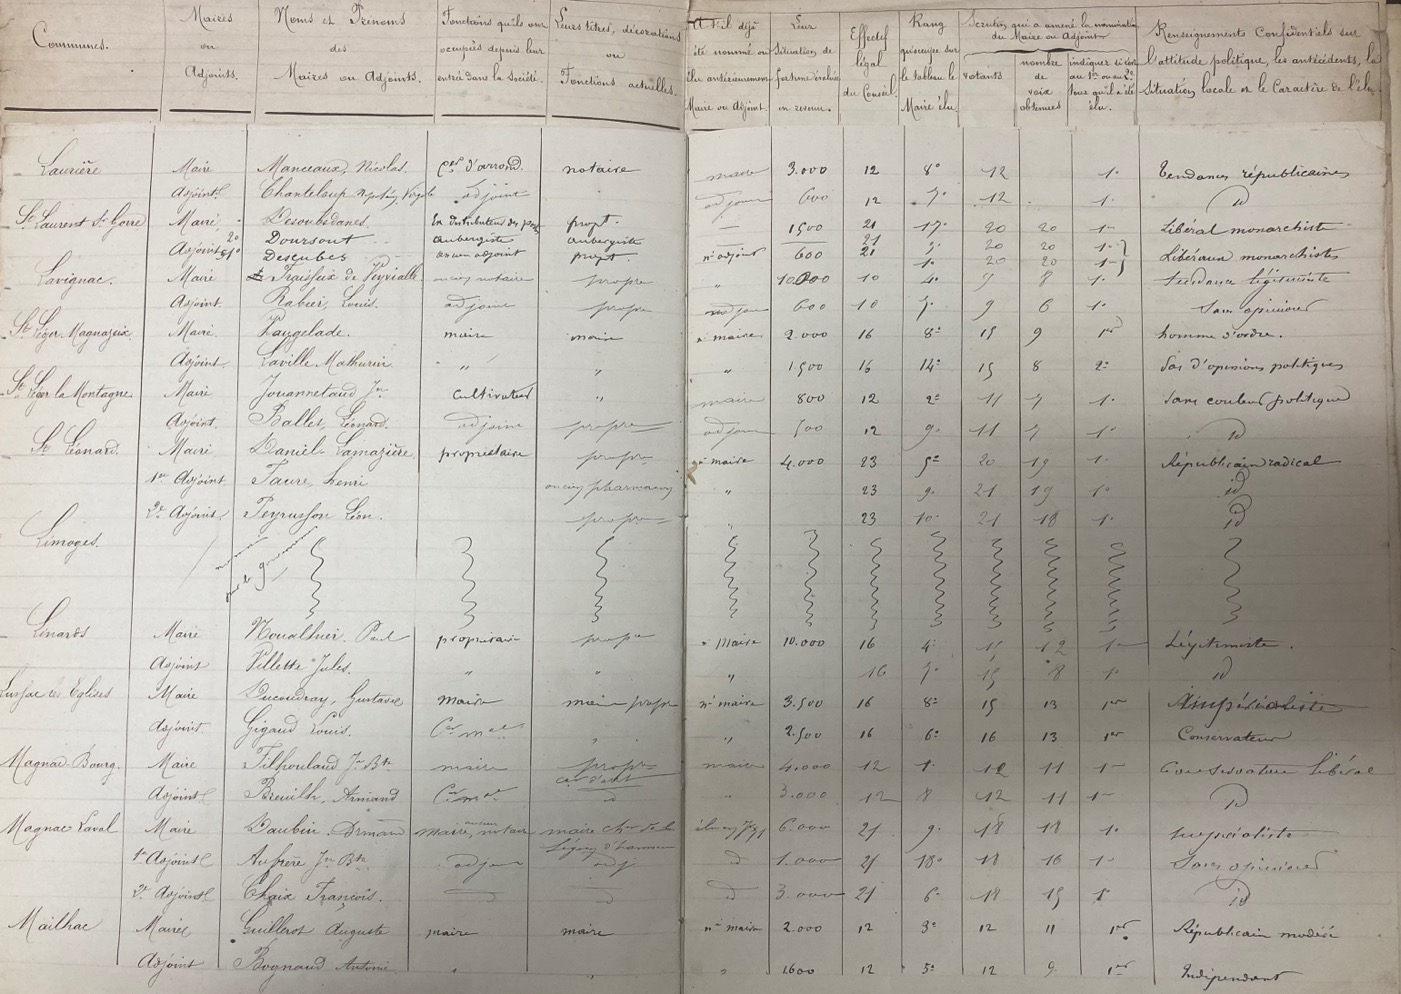 Communes. | Maires ou Adjoints. | Noms et Prénoms des Maires ou Adjoints. | Fonctions qu'ils ont occupées depuis leur entrée dans la Société. | Leurs titres, décorations ou Fonctions actuelles. | A-t-il déjà été nommé ou élu antérieurement Maire ou Adjoint. | Leur Situation de fortune évaluée en revenu. | Effectif légal du Conseil. | Rang qu'occupe sur le tableau le Maire élu. | Scrutin qui a amené la nomination du Maire ou Adjoint | votants | nombre de voix obtenues | indiquer si c'est au 1er ou au 2e tour qu'il a été élu. | Renseignements Confidentiels sur l'attitude politique, les antécédents, la Situation locale et le Caractère de l'élu.
Laurière | Maire | Manceaux, Nicolas. | Cer d'arrond. | notaire | maire | 3.000 | 12 | 8e | 12 | 1e | Tendances républicaines
Adjoint | Chanteloup | adjoint | adjoint | 600 | 12 | 7e | 12 | 1e | id
St Laurent St Gorre | Maire | Desoubedanes. | propt. | 1500 | 21 | 17e | 20 | 20 | 1e | Libéral monarchiste
Adjoints 2e | Doursout | aubergiste | aubergiste | 21 | 20 | 20 | 1e
1e | Descubes | ancien adjoint | propt. | n. adjoint | 600 | 21 | 1e | 20 | 20 | 1e | Libéraux monarchistes
Lavignac. | Maire | de Peyrialle | ancien notaire | propre | " | 10 | 4e | 9 | 8 | 1e | tendance légitimiste
Adjoint. | Rabier, Louis. | adjoint | propre | adjoint | 600 | 10 | 7e | 9 | 6 | 1e | Sans opinions
St Léger Magnazeix | Maire | Peugelade. | maire | maire | n. maire | 2.000 | 16 | 8e | 15 | 9 | 1er | homme d'ordre.
Adjoint | Laville Mathurin | " | " | " | 1500 | 16 | 14e | 15 | 8 | 2e | Pas d'opinions politiques
St Léger la Montagne | Maire | Jouannetaud Jn | Cultivateur | " | maire | 800 | 12 | 2e | 11 | 7 | 1e | Sans couleur politique
Adjoint. | Ballet, Léonard. | adjoint | propre | adjoint | 500 | 12 | 9e | 11 | 7 | 1e | id
St Léonard. | Maire | Daniel-Lamazière. | propriétaire | propre | n. maire | 4.000 | 23 | 5e | 20 | 19 | 1e | Républicain radical
1er Adjoint | Faure, henri | ancien pharmacien | " | 23 | 9e | 21 | 19 | 1e | id
2e Adjoint | Peyrusson Léon. | propre | " | 23 | 10e | 21 | 18 | 1e | id
Limoges. | nommés par le gouvernement
Linards | Maire | Noualhier. Paul | propriétaire | propre | n. Maire | 10.000 | 16 | 4e | 15 | 12 | 1e | Légitimiste.
Adjoint | Villette Jules. | " | " | " | 16 | 7e | 15 | 8 | 1e | id
Lussac les Eglises | Maire | Ducoudray, Gustave | maire | maire propre | n. maire | 3.500 | 16 | 8e | 15 | 13 | 1er | Impérialiste
Adjoint. | Gigaud Louis. | Cer mal | " | " | 2.500 | 16 | 6e | 16 | 13 | 1er | Conservateur
Magnac-Bourg. | Maire | Tilhouland Jn Bte | maire | propre cer d'arrt | maire | 4.000 | 12 | 1e | 12 | 11 | 1e | Conservateur libéral
Adjoint | Breuilh, Armand | Cer mal | id | " | 3.000 | 12 | 8 | 12 | 11 | 1e | id
Magnac Laval | Maire | Daubin. | Maire, ancien notaire | maire cher de la Légion d'honneur | 6.000 | 21 | 9e | 18 | 18 | 1e | impérialiste
1er Adjoint | Aufrère Jn Bte | adjoint | adj | id | 1.000 | 21 | 18e | 18 | 16 | 1e | Sans opinions
2e Adjoint | Chaix François. | id | id | id | 3.000 | 21 | 6e | 18 | 15 | 1e | id
Mailhac | Maire | Guillerot Auguste | maire | maire | n. maire | 2.000 | 12 | 3e | 12 | 11 | 1er | Républicain modéré
Adjoint | Bognaud Antoine | " | " | " | 1600 | 12 | 5e | 12 | 9 | 1er | Indépendant